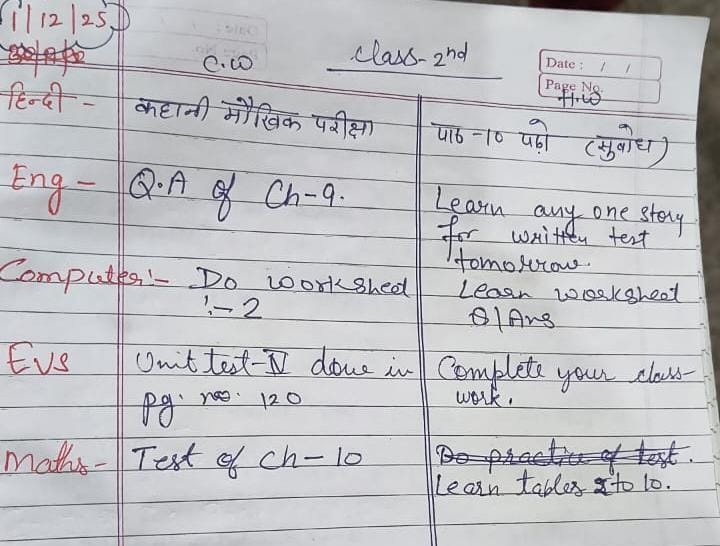 1/12/25
C.W
Class- 2nd
Date : / /
Page No.
H.W
हिन्दी -
कहानी मौखिक परीक्षा
पाठ -10 पढ़ो (सुबोध)
Eng -
Q.A of Ch-9.
Learn any one story
for written test
tomorrow.
Computer:-
Do worksheet
:- 2
Learn worksheet
Q/Ans
EVS
Unit test-IV done in
pg. no. 120
Complete your class-
work.
Maths-
Test of Ch-10
Do practice of test.
Learn tables 2 to 10.